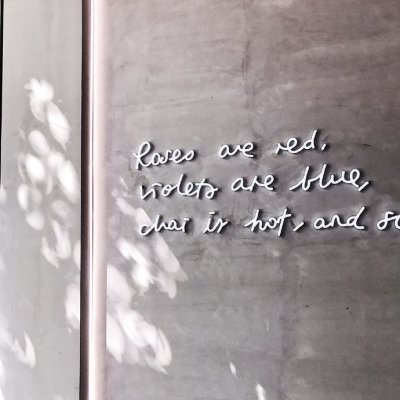 Roses are red,
violets are blue,
chai is hot, and so